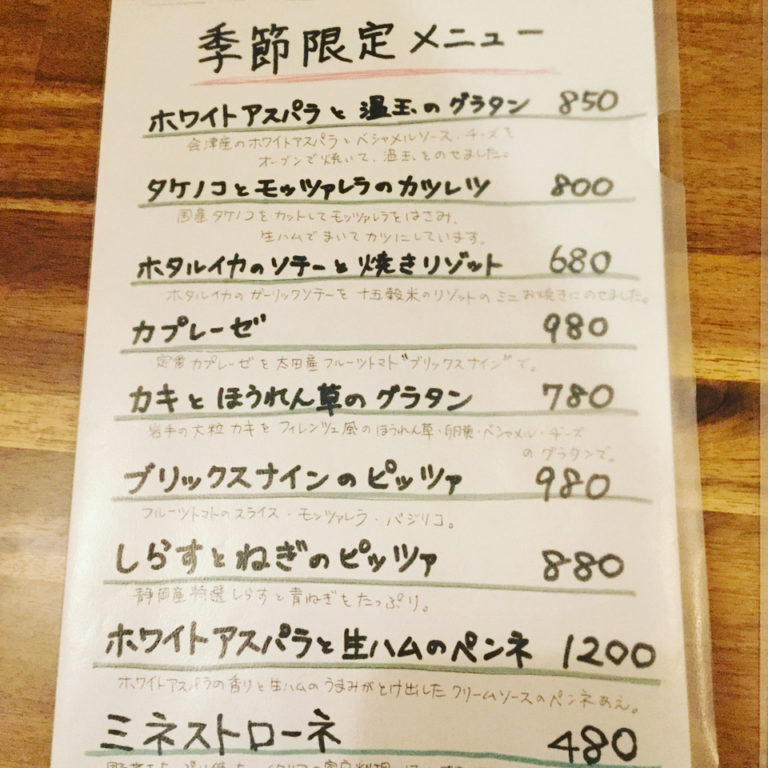 季節限定メニュー
ホワイトアスパラと温玉のグラタン 850
会津産のホワイトアスパラとベシャメルソース・チーズを
オーブンで焼いて、温玉をのせました。
タケノコとモッツァレラのカツレツ 800
国産タケノコをカットしてモッツァレラをはさみ、
生ハムでまいてカツにしています。
ホタルイカのソテーと焼きリゾット 680
ホタルイカのガーリックソテーを十五穀米のリゾットのミニお焼きにのせました。
カプレーゼ 980
定番カプレーゼを太田産フルーツトマト"ブリックスナイン"で。
カキとほうれん草のグラタン 780
岩手の大粒カキをフィレンツェ風のほうれん草・卵黄・ベシャメル・チーズ
のグラタンで。
ブリックスナインのピッツァ 980
フルーツトマトのスライス・モッツァレラ・バジリコ。
しらすとねぎのピッツァ 880
静岡産特選しらすと青ねぎをたっぷり。
ホワイトアスパラと生ハムのペンネ 1200
ホワイトアスパラの香りと生ハムのうまみがとけ出したクリームソースのペンネあえ。
ミネストローネ 480